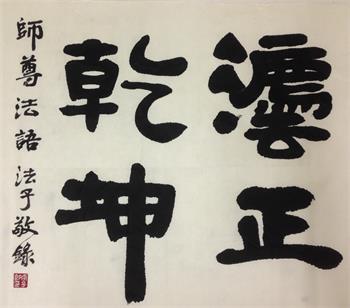 灋正
乾坤
師尊法語 法子敬錄